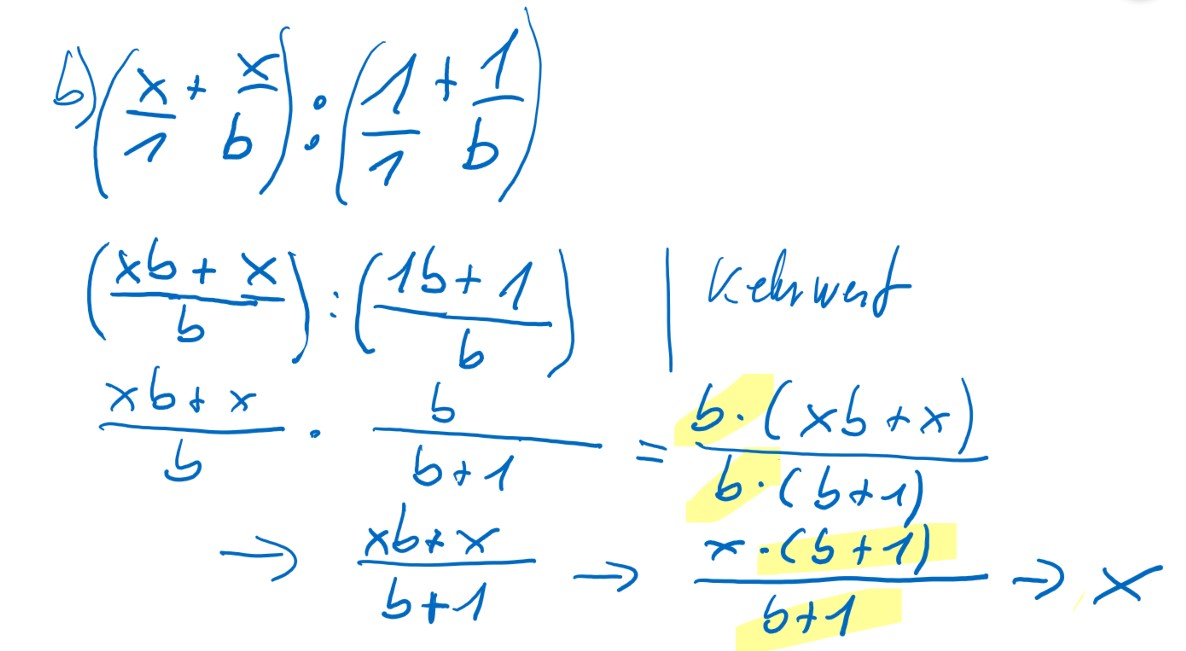 b) (x/1 + x/b) : (1/1 + 1/b)
((xb + x)/b) : ((1b + 1)/b) | Kehrwert
(xb + x)/b · b/(b + 1) = (b · (xb + x))/(b · (b + 1))
→ (xb + x)/(b + 1) → (x · (b + 1))/(b + 1) → x